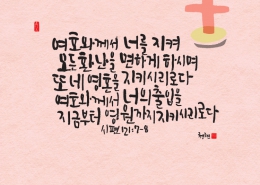 여호와께서 너를 지켜
모든 환난을 면하게 하시며
또 네 영혼을 지키시리로다
여호와께서 너의 출입을
지금부터 영원까지 지키시리로다
시편 121:7-8